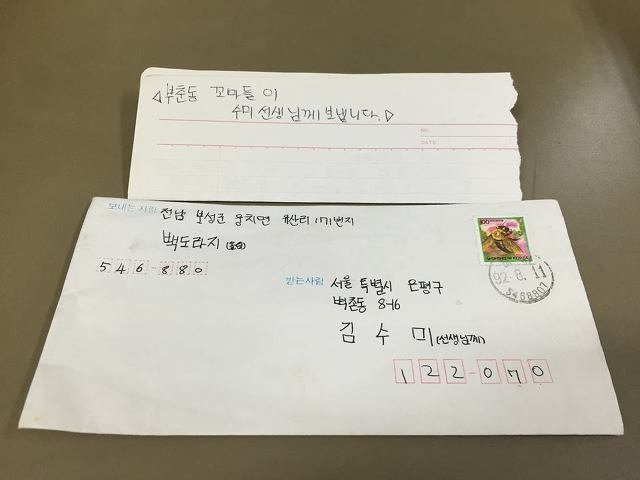 ◁부춘동 꼬마들이
수미 선생님께 보냅니다.▷
NO.
DATE
보내는 사람 전남 보성군 웅치면 산리 171번지
백도라지
546-880
100
92.8.11
5468807
받는사람 서울 특별시 은평구
벽춘동 8-16
김수미(선생님께)
122-070